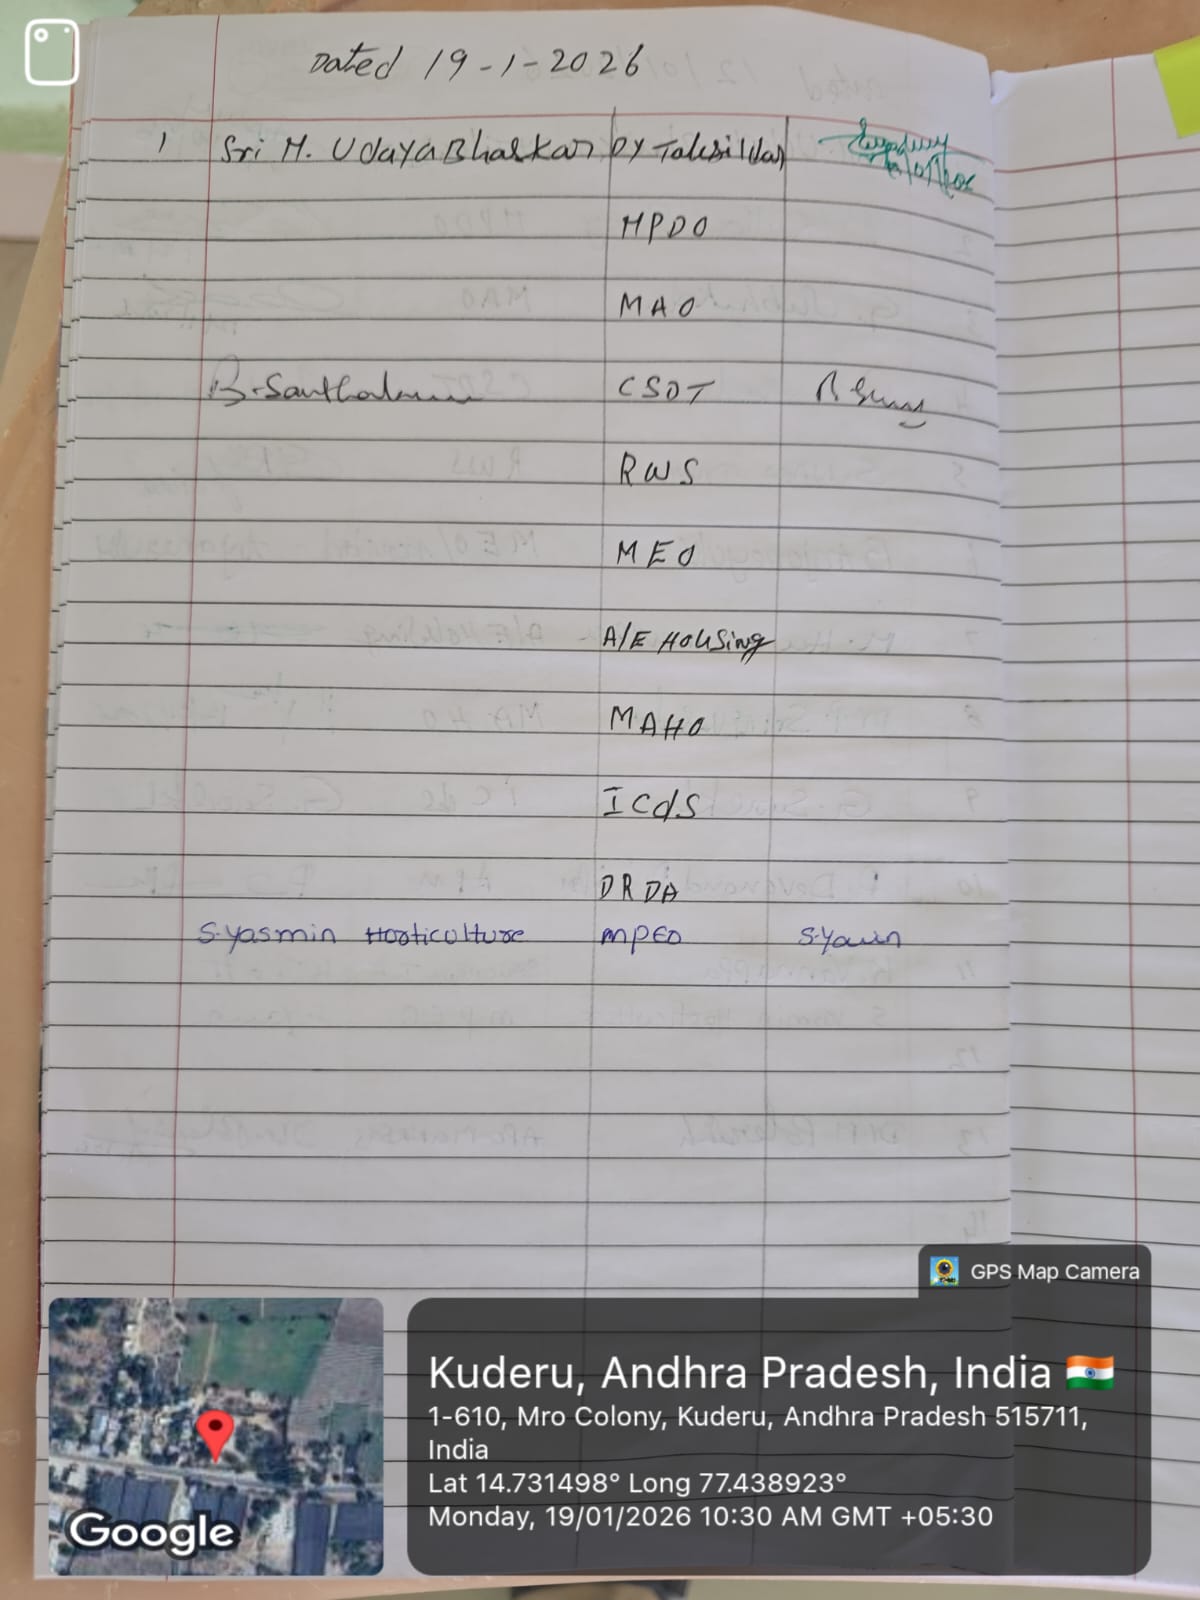 Dated 19-1-2026
1 Sri M. Udaya Bhaskar Dy Tahsildar
MPDO
MAO
CSDT
RWS
MEO
A/E Housing
MAHO
ICdS
DRDA
S.yasmin Horticulture MPEO
GPS Map Camera
Kuderu, Andhra Pradesh, India
1-610, Mro Colony, Kuderu, Andhra Pradesh 515711,
India
Lat 14.731498° Long 77.438923°
Monday, 19/01/2026 10:30 AM GMT +05:30
Google